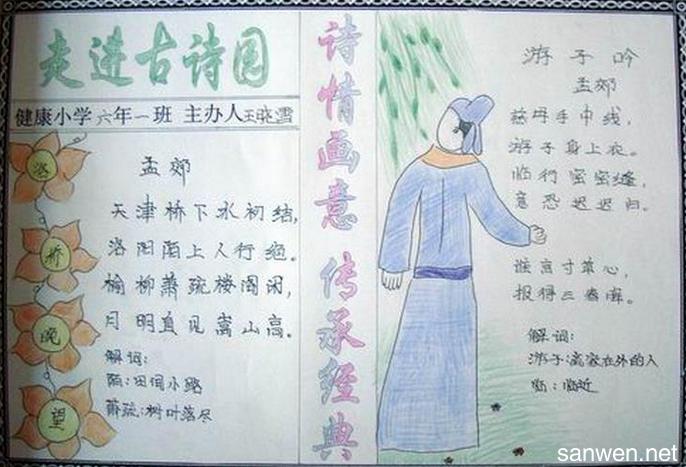 走进古诗园
健康小学六年一班 主办人王晓雪
洛
桥
晚
望
孟郊
天津桥下水初结,
洛阳陌上人行绝。
榆柳萧疏楼阁闲,
月明直见嵩山高。
解词:
陌:田间小路
萧疏:树叶落尽
诗情画意 传承经典
游子吟
孟郊
慈母手中线,
游子身上衣。
临行密密缝,
意恐迟迟归。
谁言寸草心,
报得三春晖。
解词:
游子:离家在外的人
临:临近
sanwen.net